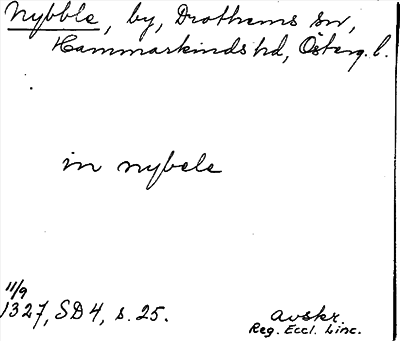 Nybble, by, Drothems sn,
Hammarkinds hd, Österg. l.
in nybele
11/9
1327, SD 4, s. 25.
avskr.
Reg. Eccl. Linc.